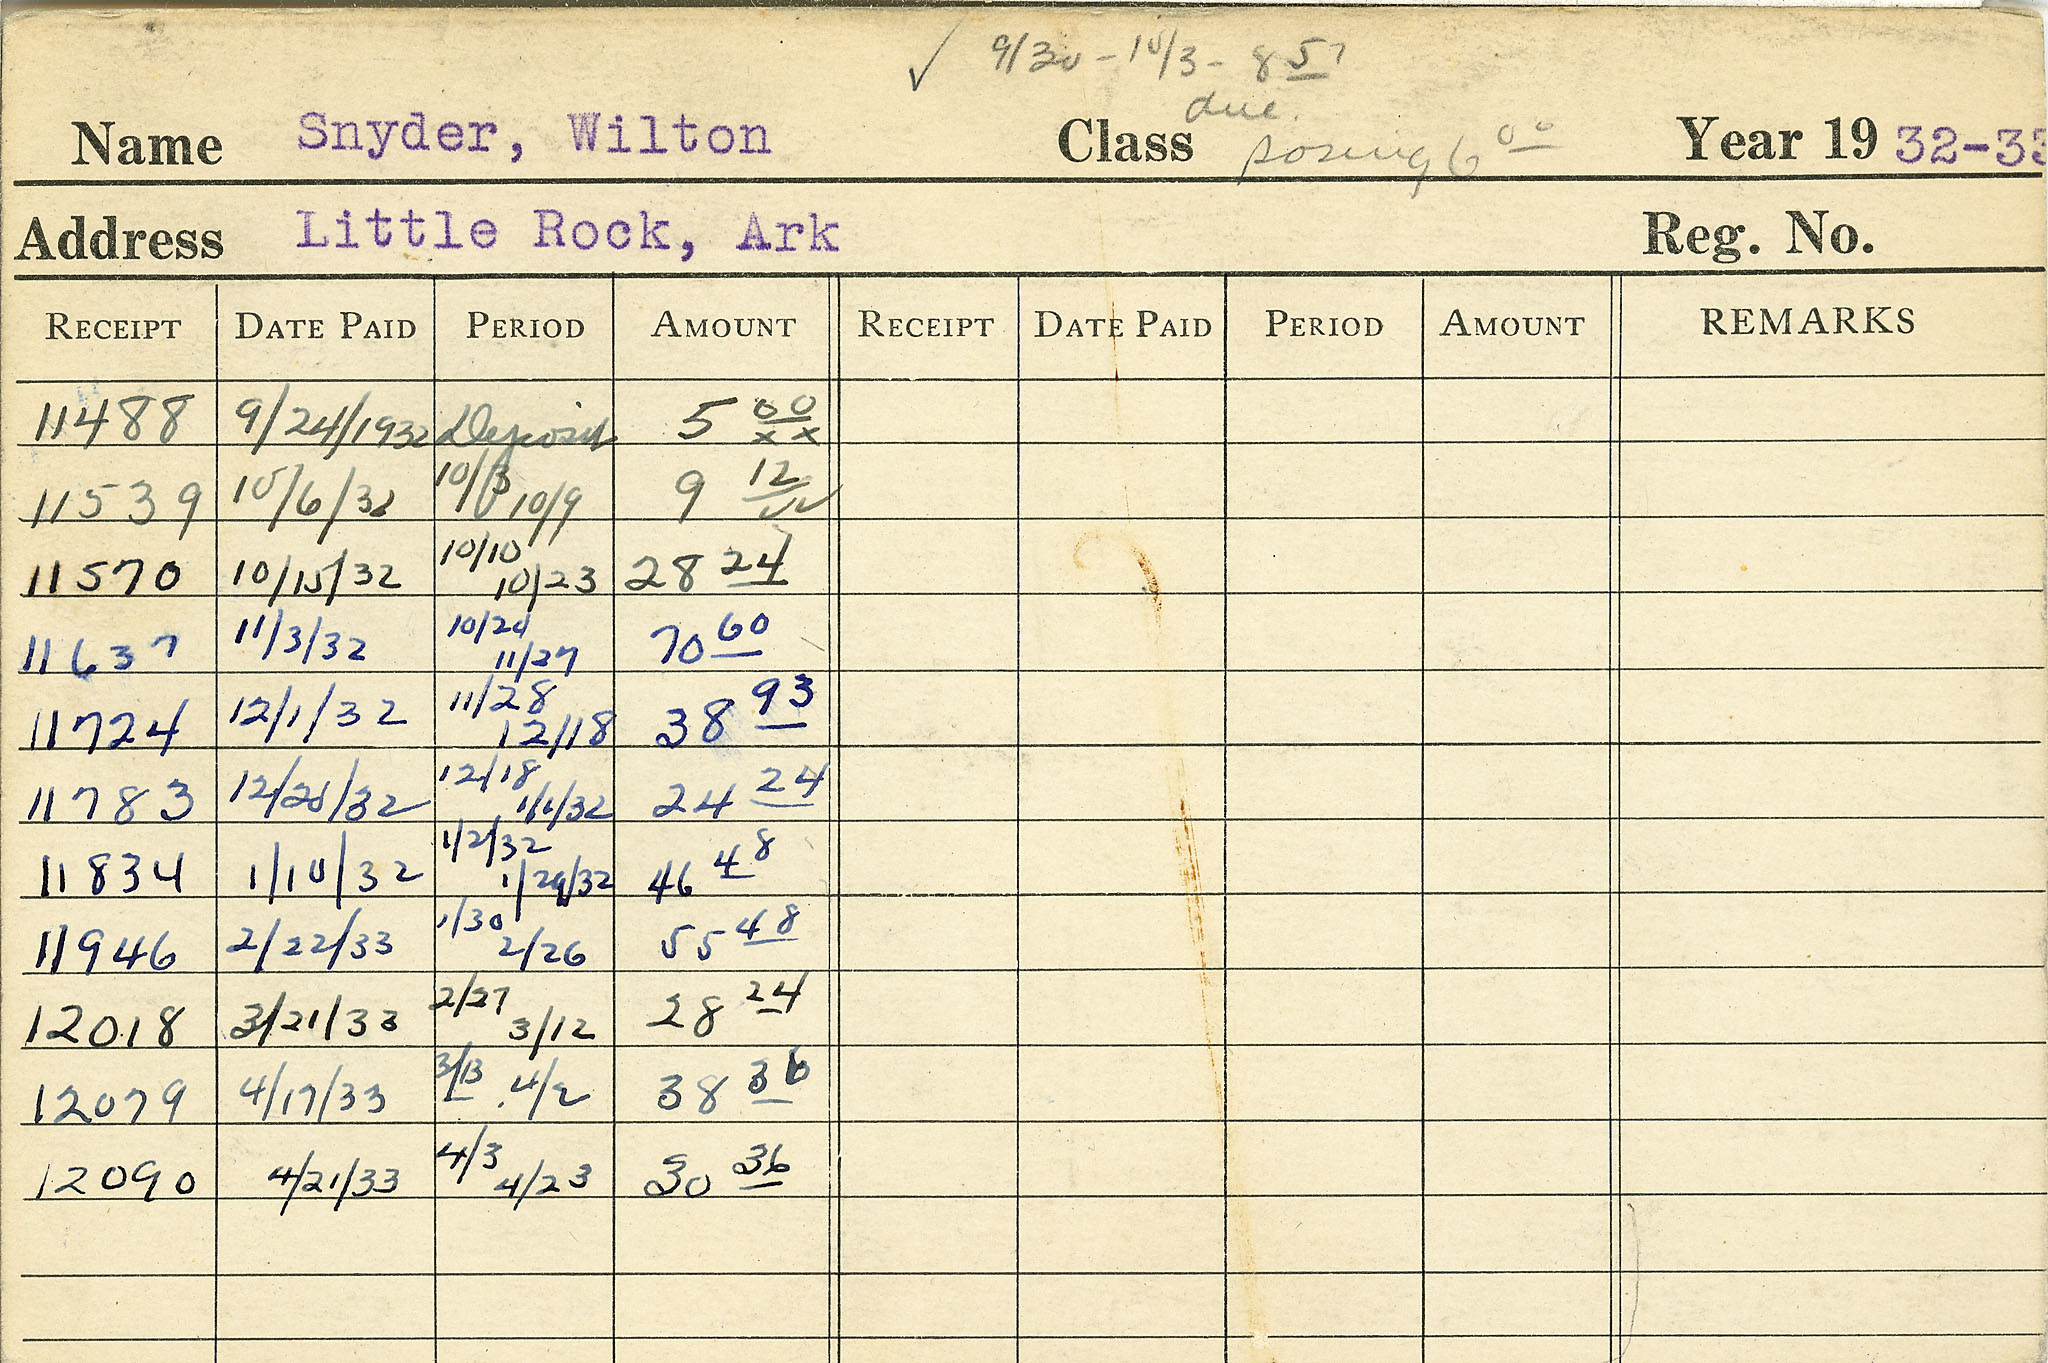 ✓ 9/30 - 10/3 - 8 57
due.
Name Snyder, Wilton Class posing 6 00 Year 19 32-33
Address Little Rock, Ark Reg. No.
RECEIPT DATE PAID PERIOD AMOUNT RECEIPT DATE PAID PERIOD AMOUNT REMARKS
11488 9/24/1932 Deposit 5 00
11539 10/6/32 10/3 10/9 9 12
11570 10/15/32 10/10 10/23 28 24
11637 11/3/32 10/24 11/27 70 60
11724 12/1/32 11/28 12/18 38 93
11783 12/20/32 12/18 1/1/32 24 24
11834 1/10/32 1/2/32 1/29/32 46 48
11946 2/22/33 1/30 2/26 55 48
12018 3/21/33 2/27 3/12 28 24
12079 4/17/33 3/13 4/2 38 36
12090 4/21/33 4/3 4/23 30 36